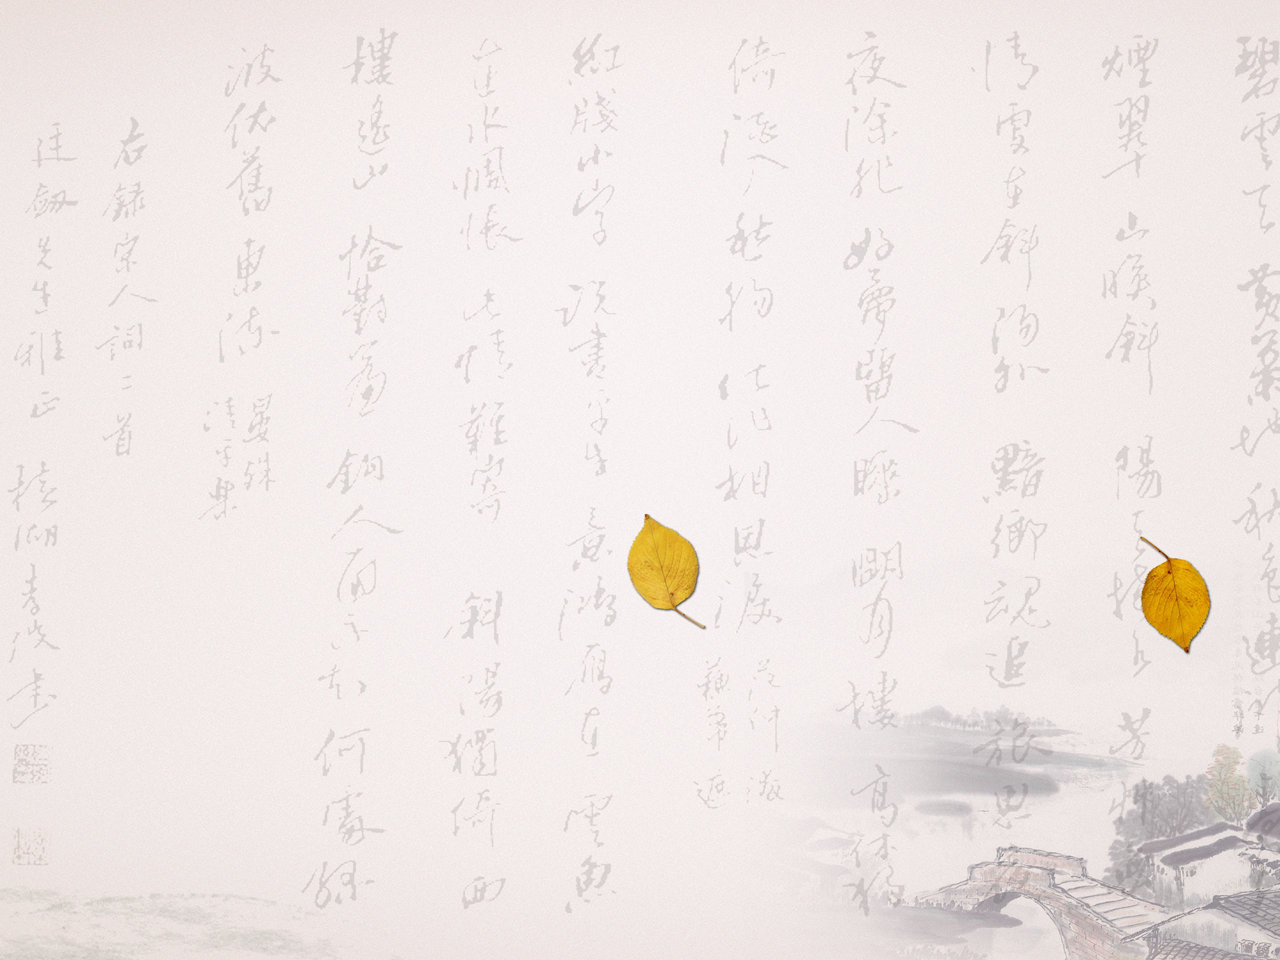 碧雲天黃葉地秋色連
煙翠山暎斜陽天接水芳艸無
情更在斜陽外黯鄉魂追旅思
夜除非好夢留人睡明月樓高休獨
倚酒入愁腸化作相思淚
范仲淹
蘇幕遮
紅牋小字說盡平生意鴻雁在雲魚
在水惆悵此情難寄斜陽獨倚西
樓遙山恰對簾鉤人面不知何處綠
波依舊東流
晏殊
清平樂
右錄宋人詞二首
廷劔先生雅正